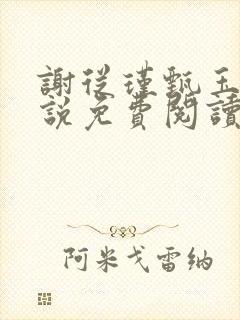 謝從瑾甄玉
說免費閱讀
阿米戈雷納